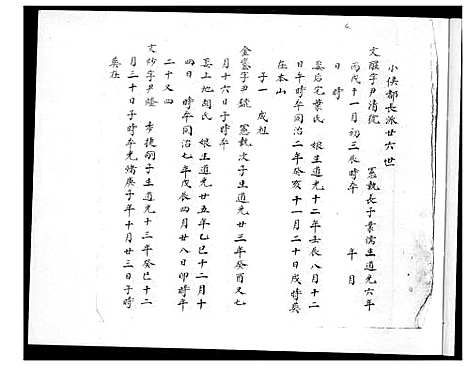 小侯都長派廿六世
文醒字尹清號　憲執長子業儒生道光六年
丙戌十一月初三辰時卒　年　月
日　時
娶后宅葉氏　娘生道光十二年壬辰八月十二
日午時卒同治二年癸亥十一月二十日戌時葬
在本山
子一　成祖
金鑾字尹號　憲執次子生道光廿三年癸酉又七
月十六日子時卒
娶上地胡氏　娘生道光廿五年乙巳十二月十
四日　時卒同治七年戊辰四月廿八日卯時年
二十又四
文炒字尹燈　步捷嗣子生道光十三年癸巳十二
月三十日子時卒光緒庚子年十月廿三日子時
葬在